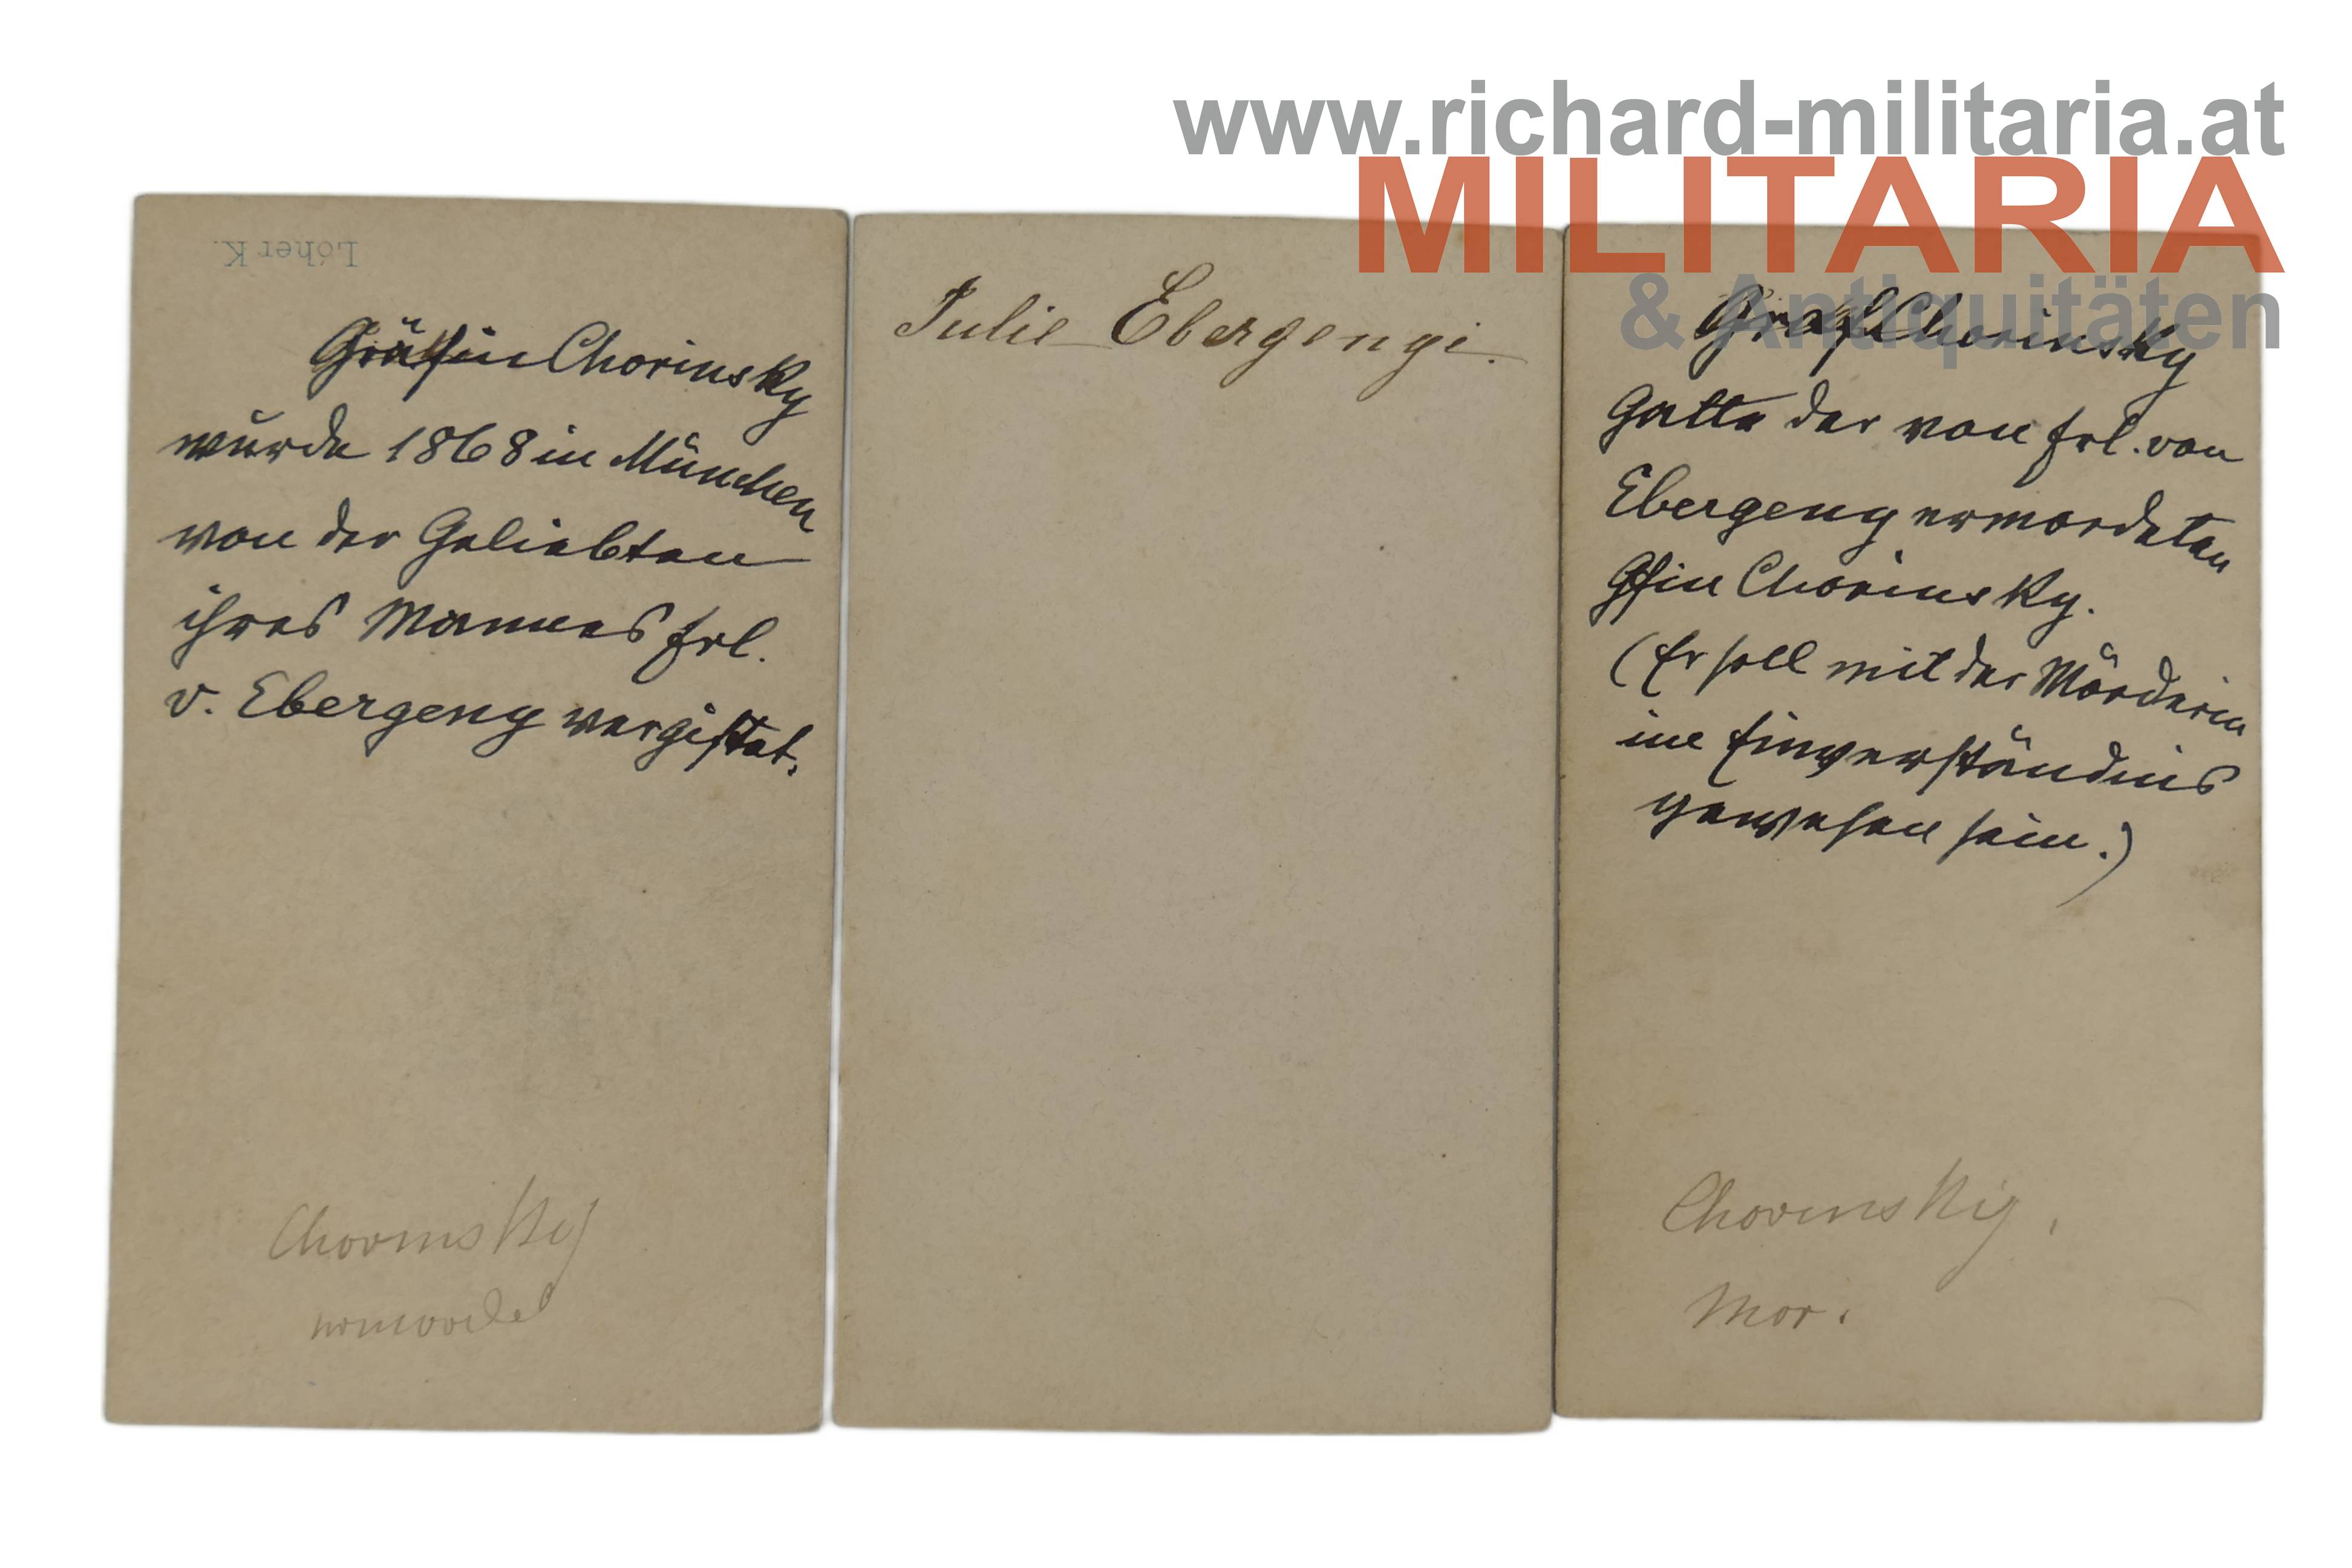 www.richard-militaria.at
MILITARIA
& Antiquitäten
Löher K.
Gräfin Chorinsky
wurde 1868 in München
von der Geliebten
ihres Mannes Frl.
v. Ebergeny vergiftet.
Chorinsky
Julie Ebergengi.
Graf Chorinsky
Gatte der von Frl. von
Ebergeny ermordeten
Gfin Chorinsky.
(Er soll mit der Mörderin
im Einverständnis
gewesen sein.)
Chorinsky.
Mor.